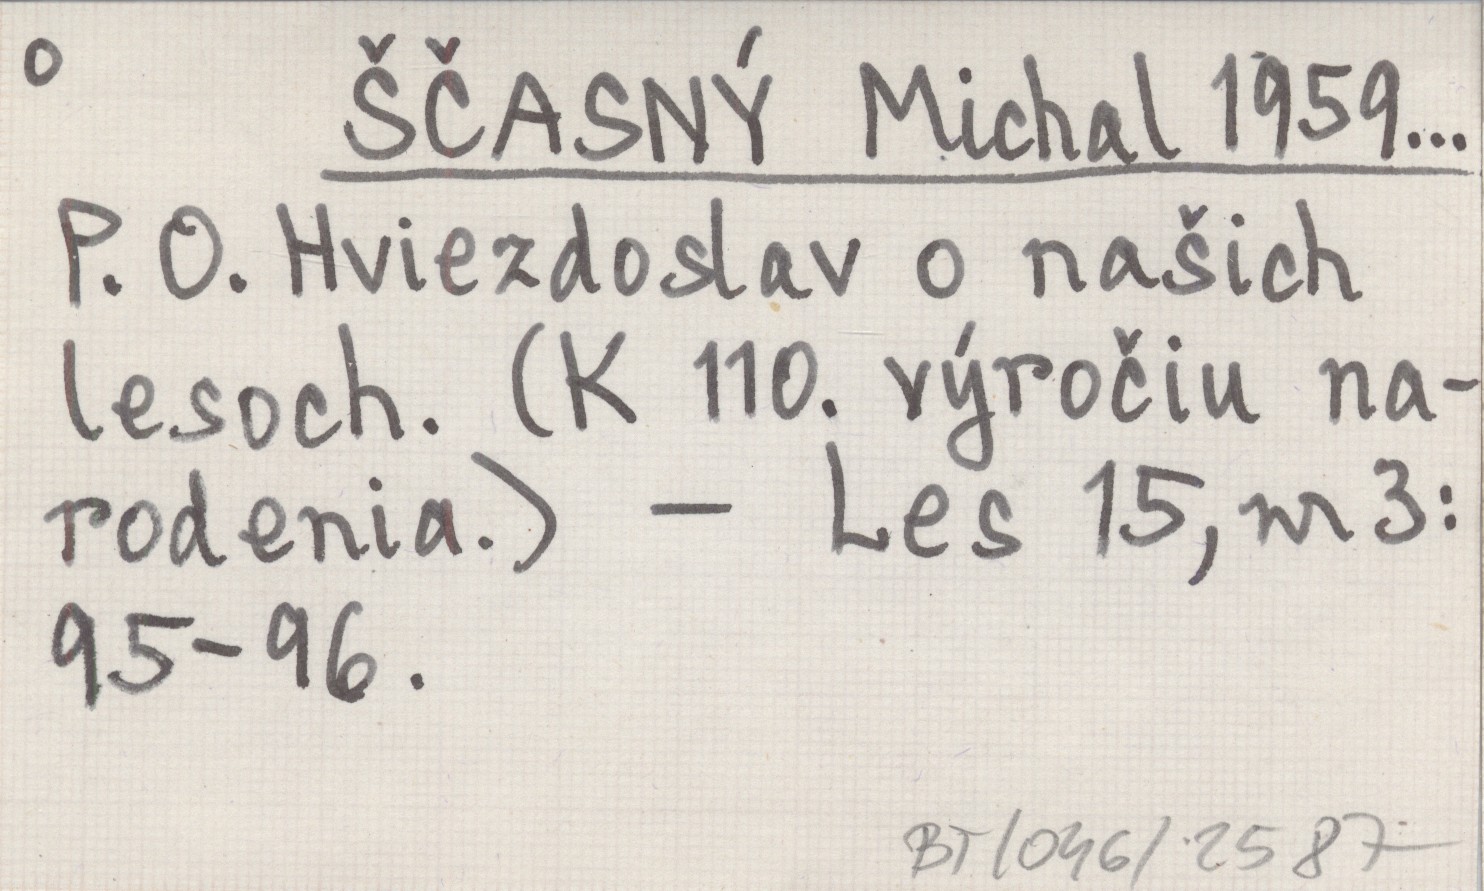 o ŠČASNÝ Michal 1959...
P. O. Hviezdoslav o našich
lesoch. (K 110. výročiu na-
rodenia.) — Les 15, nr 3:
95-96.
BT/046/2587